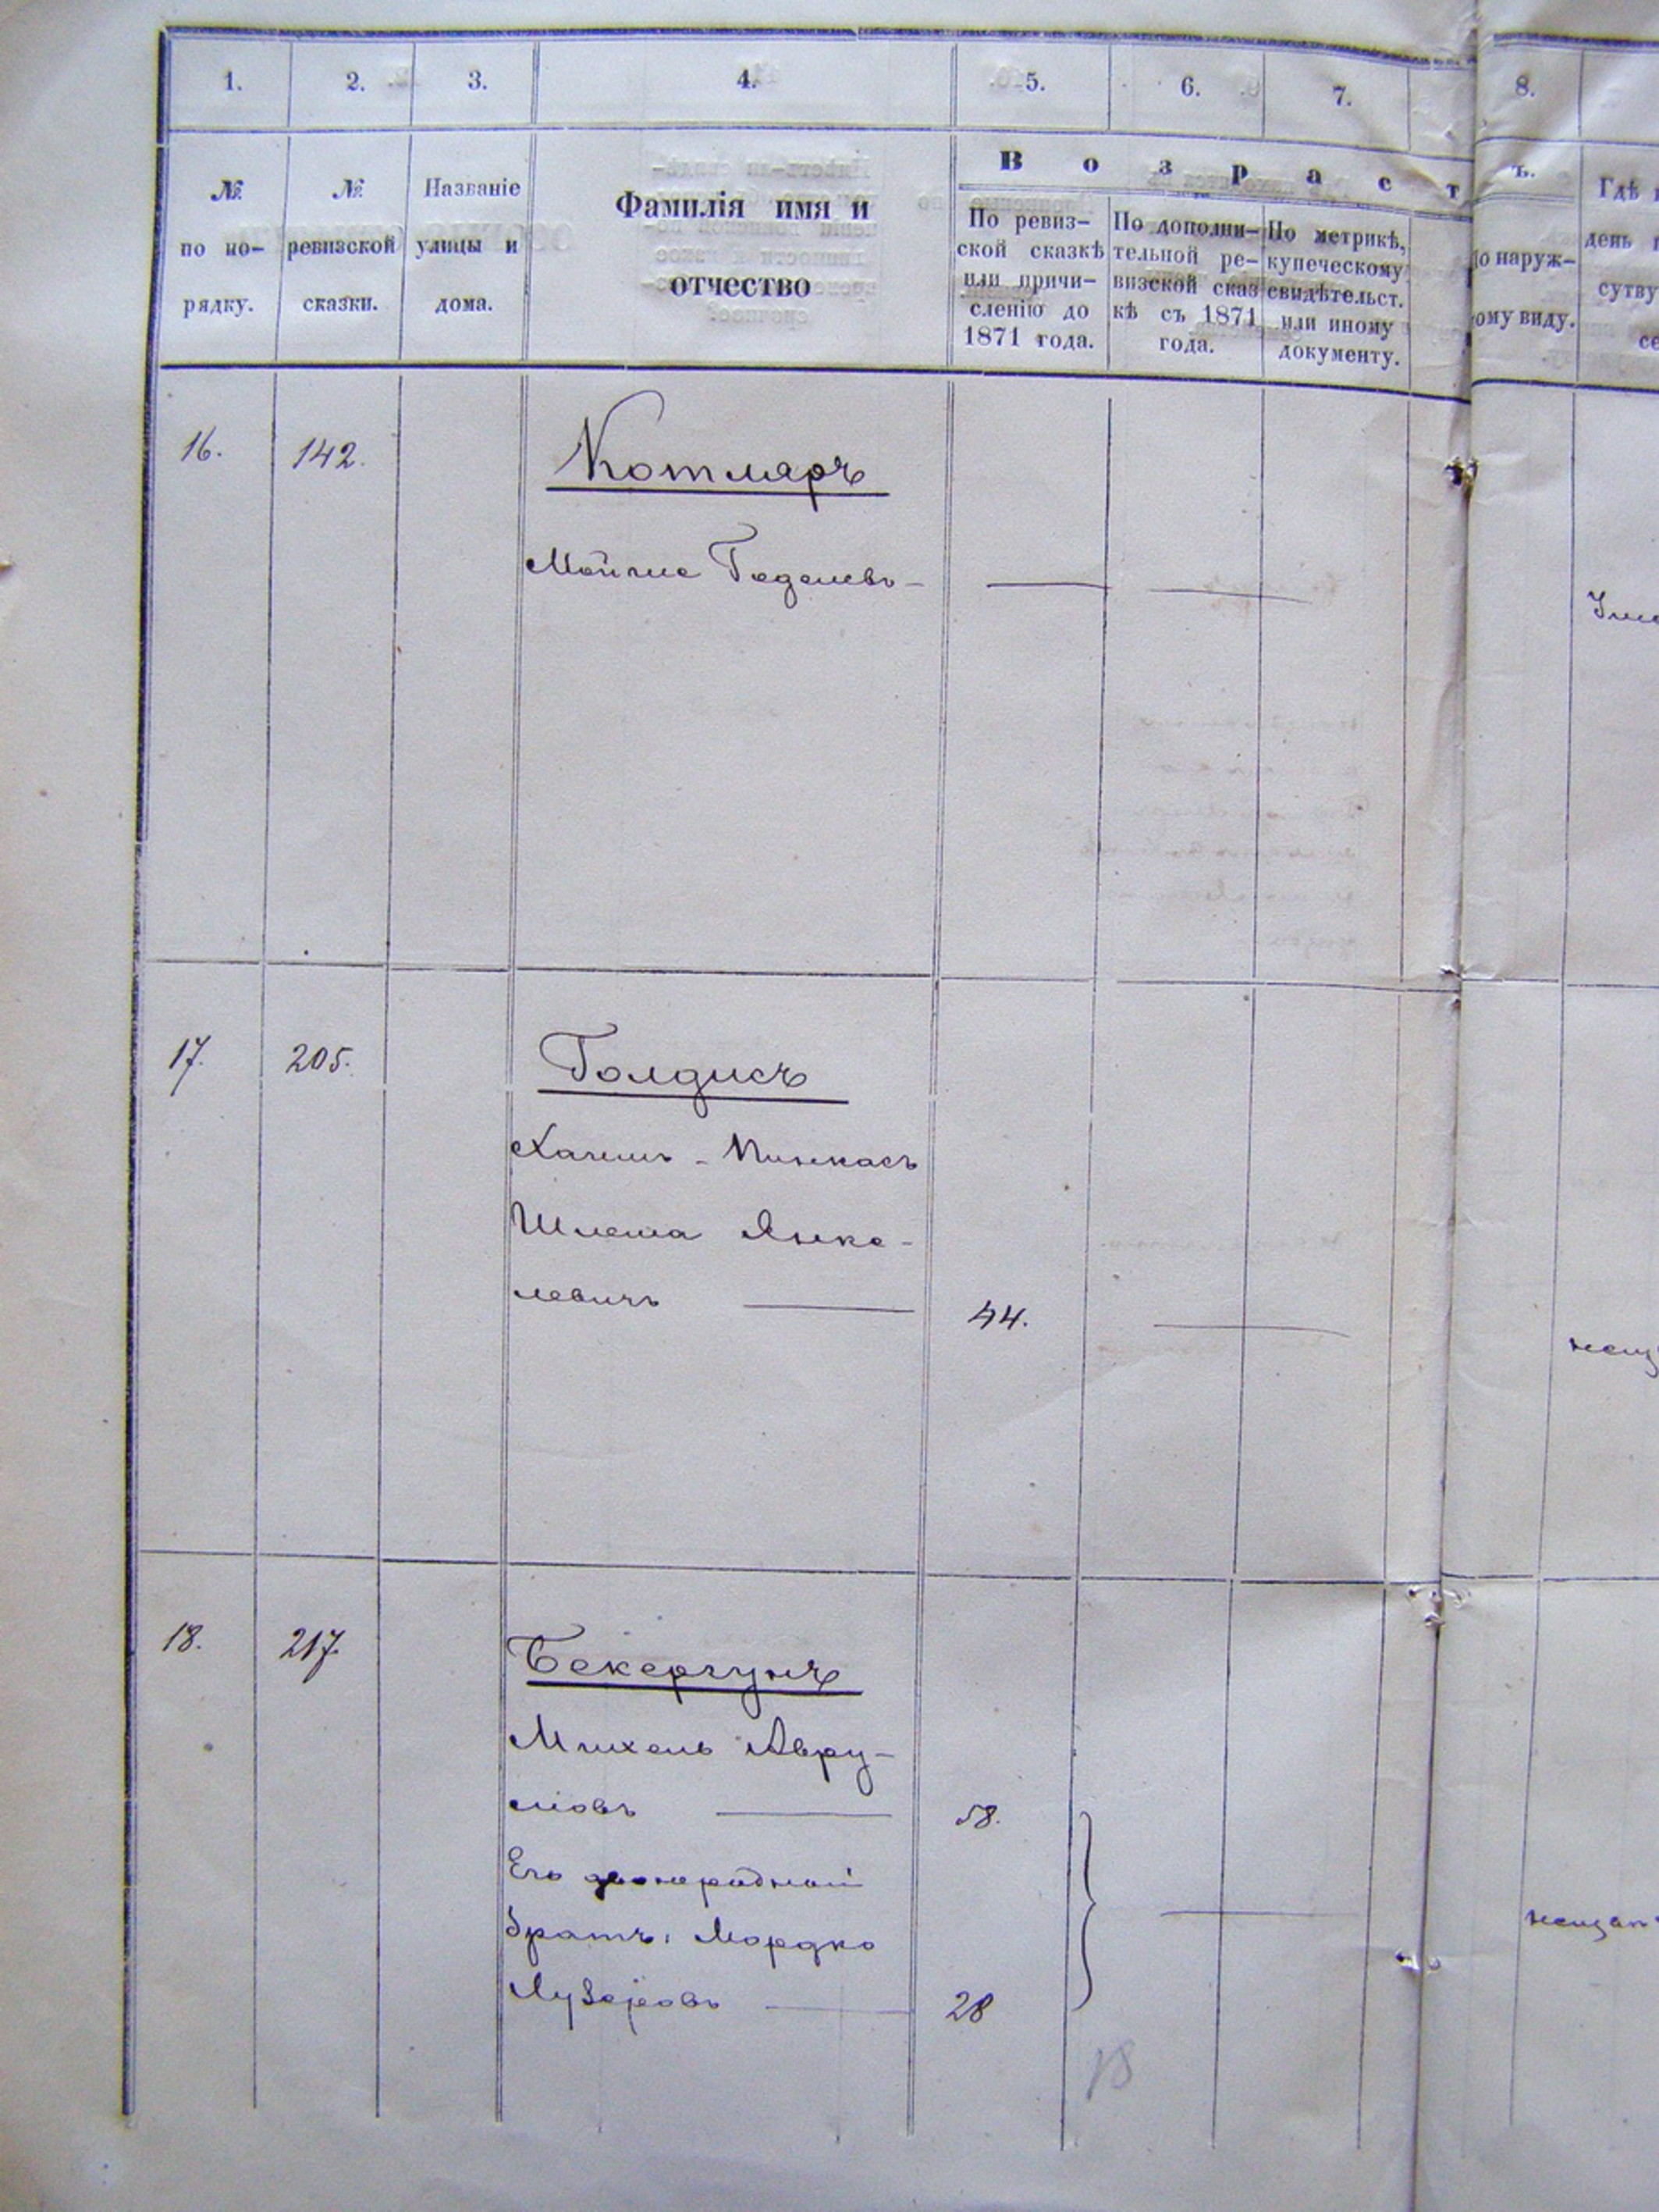 1. 2. 3. 4. 5. 6. 7. 8.
№ по по-рядку.
№ ревизской сказки.
Названіе улицы и дома.
Фамилія имя и отчество
В о з р а с т ъ.
По ревиз-
ской сказкѣ
или причи-
сленію до
1871 года.
По дополни-
тельной ре-
визской сказ
кѣ съ 1871
года.
По метрикѣ,
купеческому
свидѣтельст.
или иному
документу.
по наруж-
ному виду.
Гдѣ
день
сутву
се
16. 142. Котляръ
Мойше Гедалевъ —
17. 205. Голдисъ
Хаимъ - Пинкасъ
Шлема Янке-
левичъ — 44.
18. 217. Бекергунъ
Михель Авру-
мовъ — 58.
Его двоюродный
братъ: Мордко
Лузеровъ — 28
мещан
18